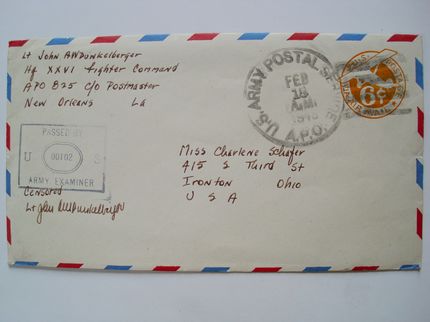 Lt John AW Dunkelberger
Hq XXVI Fighter Command
APO 825 c/o Postmaster
New Orleans La
U.S. ARMY POSTAL SERVICE
FEB
18
A.M.
A.P.O.
6¢
PASSED BY
U 00102 S
ARMY EXAMINER
Censored
Lt John AW Dunkelberger
Miss Charlene Schafer
415 S Third St
Ironton Ohio
U S A